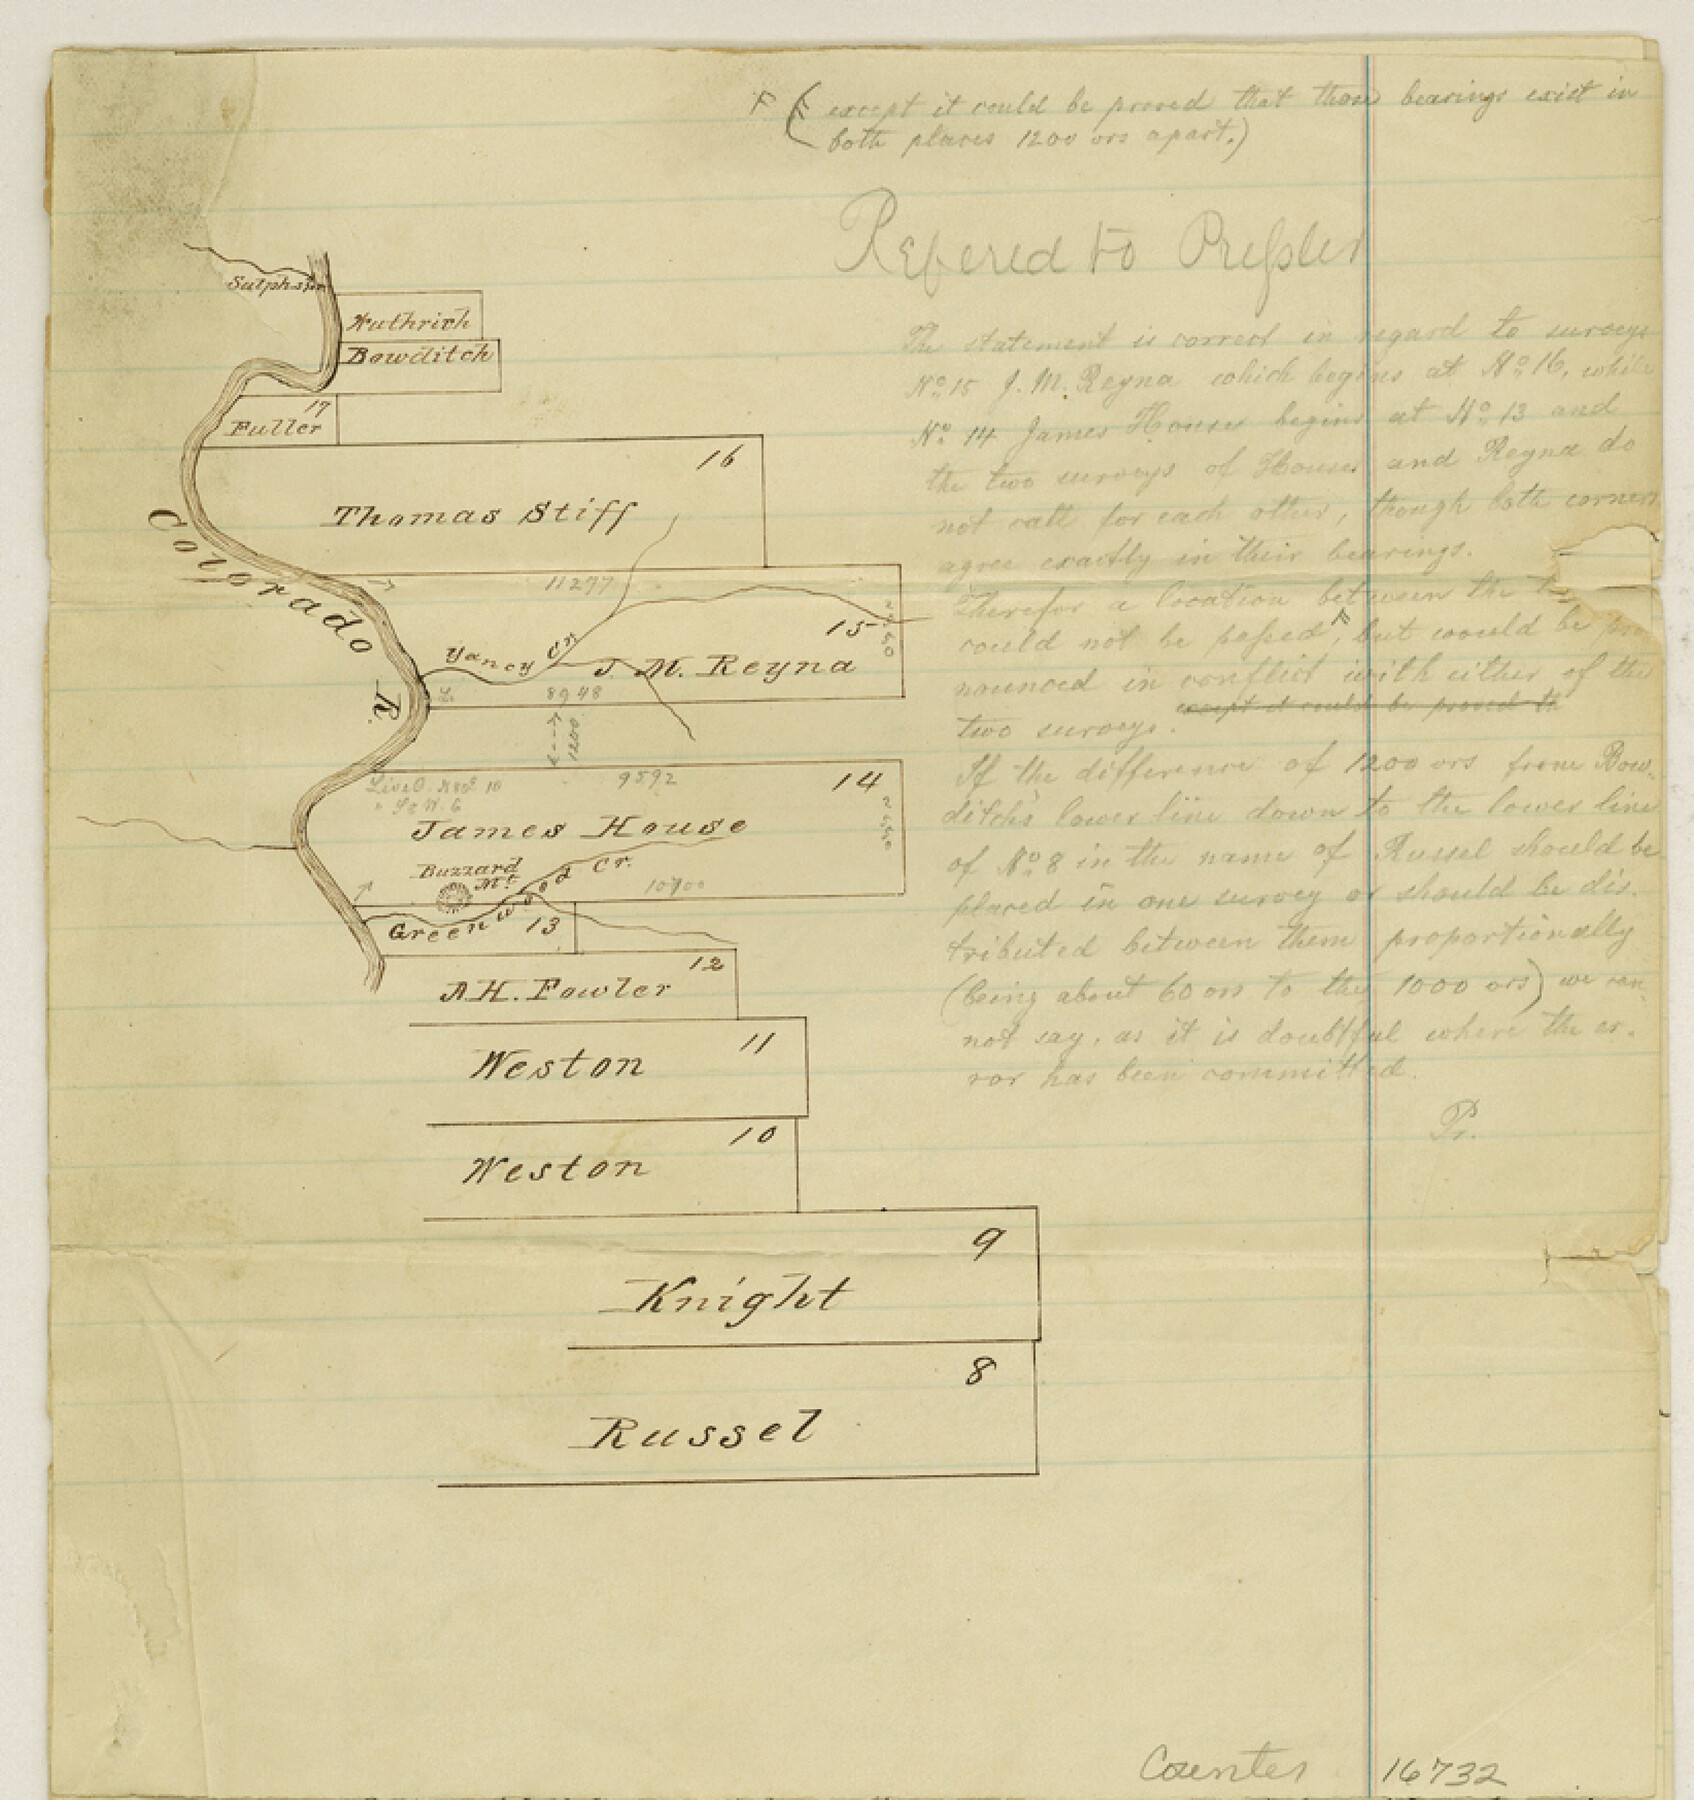 F (E except it could be proved that those bearings exist in
both places 1200 vrs apart.)
Refered to Preßler
The statement is correct in regard to surveys
No. 15 J. M. Reyna which begins at No. 16, while
No. 14 James House begins at No. 13 and
the two surveys of House and Reyna do
not call for each other, though both corners
agree exactly in their bearings.
Therefor a location between the
could not be paßed F, but would be pro
nounced in conflict with either of the
two surveys. except it could be proved th
If the difference of 1200 vrs from Bow-
ditch's lower line down to the lower line
of No. 8 in the name of Russel should be
placed in one survey or should be dis-
tributed between them proportionally
(being about 60 vrs to the 1000 vrs) we can-
not say, as it is doubtful where the er-
ror has been committed.
Pr.
Sulphur
Wuthrich
Bowditch
17
Fuller
16
Thomas Stiff
Colorado R.
11277
15
2550
Yancy Cr.
J. M. Reyna
8948
1200
9592
14
Live O. N 82 10
" S 2 W. 6
2550
James House
Buzzard
Mt.
Greenwood Cr.
10700
13
12
A H. Fowler
11
Weston
10
Weston
9
Knight
8
Russel
Counter 16732